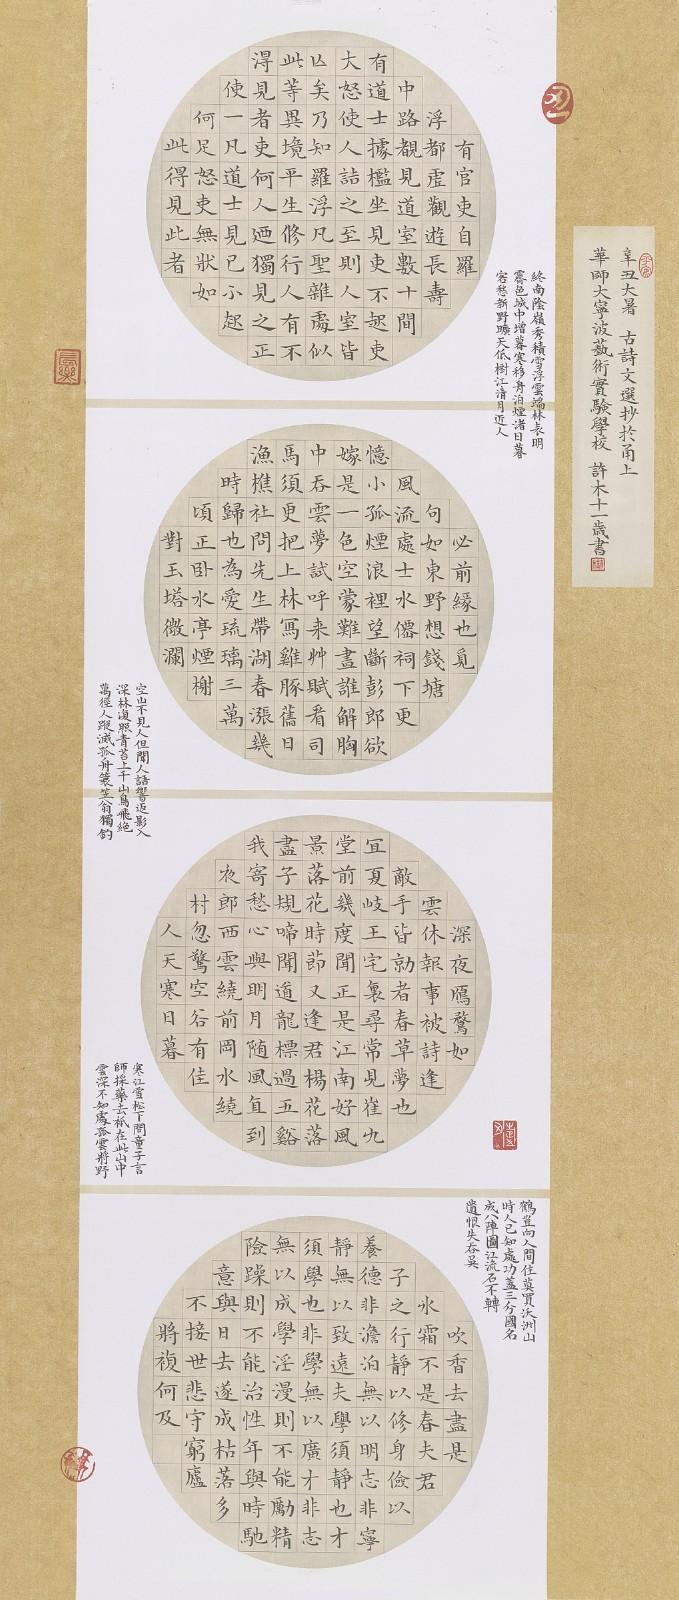 辛丑大暑 古詩文選抄於甬上
華師大寧波藝術實驗學校 許木十一歲書
有官吏自羅
浮都虛觀遊長壽
中路覩見道室數十間
有道士據檻坐見吏不起吏
大怒使人詰之至則人室皆
亾矣乃知羅浮凡聖雜處似
此等異境平生修行人有不
得見者吏何人廼獨見之正
使一凡道士見已不起
何足怒吏無狀如
此得見此者
終南陰嶺秀積雪浮雲端林表明
霽色城中增暮寒移舟泊煙渚日暮
客愁新野曠天低樹江清月近人
必前緣也覓
句如東野想錢塘
風流處士水僊祠下更
憶小孤煙浪裡望斷彭郎欲
嫁是一色空蒙難畫誰解胸
中吞雲夢試呼来艸賦看司
馬須更把上林寫雞豚舊日
漁樵社問先生帶湖春漲幾
時歸也為愛琉璃三萬
頃正卧水亭煙榭
對玉塔微瀾
空山不見人但聞人語響返影入
深林復照青苔上千山鳥飛絕
萬徑人蹤滅孤舟簑笠翁獨釣
深夜鴈鶩如
雲休報事被詩逢
敵手皆勍者春草夢也
宜夏岐王宅裏尋常見崔九
堂前幾度聞正是江南好風
景落花時節又逢君楊花落
盡子規啼聞道龍標過五谿
我寄愁心與明月隨風直到
夜郎西雲繞前岡水繞
村忽驚空谷有佳
人天寒日暮
寒江雪松下問童子言
師採藥去祇在此山中
雲深不知處孤雲將野
鶴豈向人間住莫買沃洲山
時人已知處功蓋三分國名
成八陣圖江流石不轉
遺恨失吞吳
吹香去盡是
氷霜不是春夫君
子之行靜以修身儉以
養德非澹泊無以明志非寧
靜無以致遠夫學須靜也才
須學也非學無以廣才非志
無以成學淫漫則不能勵精
險躁則不能治性年與時馳
意與日去遂成枯落多
不接世悲守窮廬
將複何及